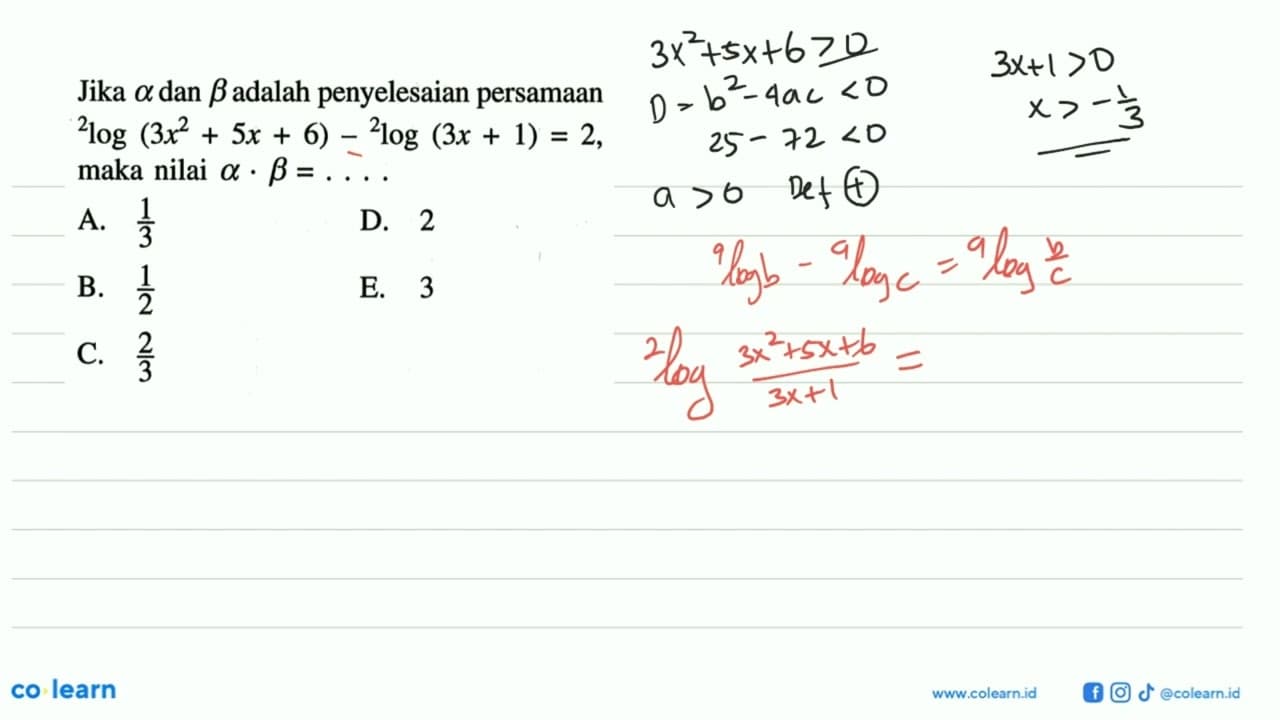 Jika α dan β adalah penyelesaian persamaan
²log (3x² + 5x + 6) – ²log (3x + 1) = 2,
maka nilai α · β = . . . .
A. 1/3
D. 2
B. 1/2
E. 3
C. 2/3
3x²+5x+6>0
D = b²-4ac <0
25 - 72 <0
a >0 Def (+)
3x+1 >0
x > -1/3
ᵃlog b - ᵃlog c = ᵃlog b/c
²log (3x²+5x+6)/(3x+1) =
co·learn
www.colearn.id
@colearn.id